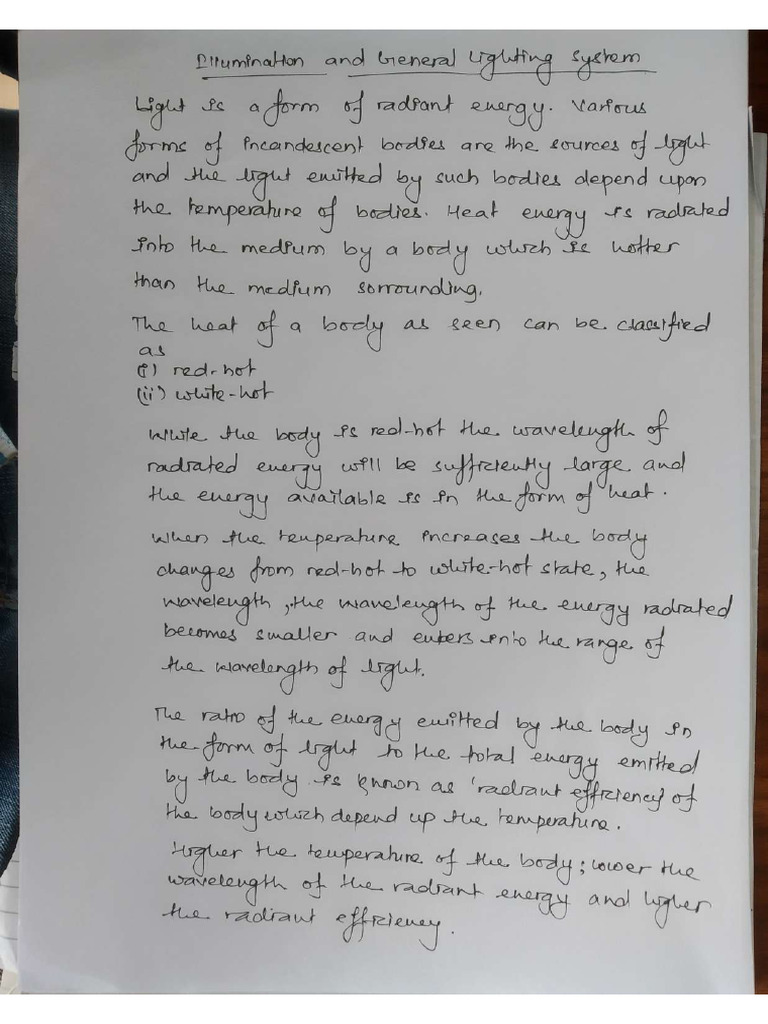 Illumination and General Lighting System
Light is a form of radiant energy. Various
forms of incandescent bodies are the sources of light
and the light emitted by such bodies depend upon
the temperature of bodies. Heat energy is radiated
into the medium by a body which is hotter
than the medium sorrounding.
The heat of a body as seen can be classified
as
(i) red-hot
(ii) white-hot
While the body is red-hot the wavelength of
radiated energy will be sufficiently large and
the energy available is in the form of heat.
When the temperature increases the body
changes from red-hot to white-hot state, the
wavelength, the wavelength of the energy radiated
becomes smaller and enters into the range of
the wavelength of light.
The ratio of the energy emitted by the body in
the form of light to the total energy emitted
by the body is known as 'radiant efficiency of
the body which depend up the temperature.
Higher the temperature of the body; lower the
wavelength of the radiant energy and higher
the radiant efficiency.